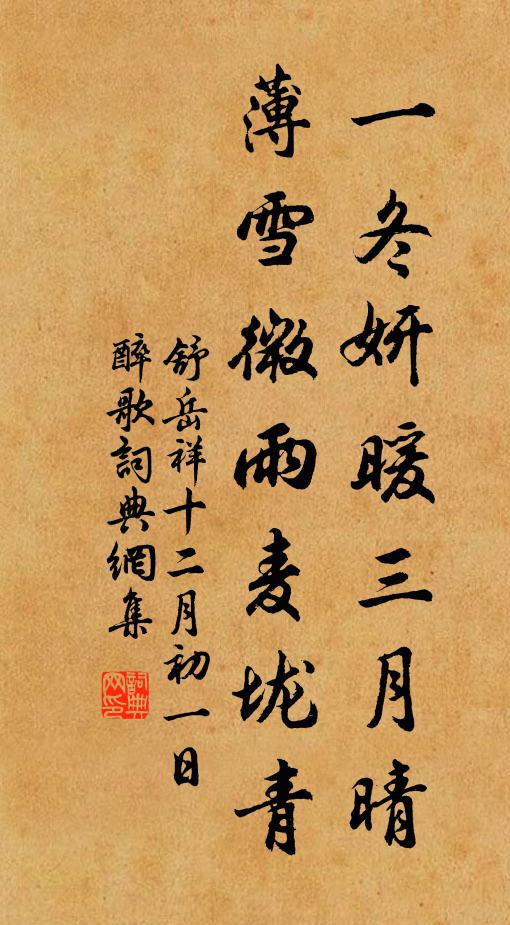 一冬妍暖三月晴
薄雪微雨麦垅青
舒岳祥十二月初一日
醉歌詞典網集
詞典
网印